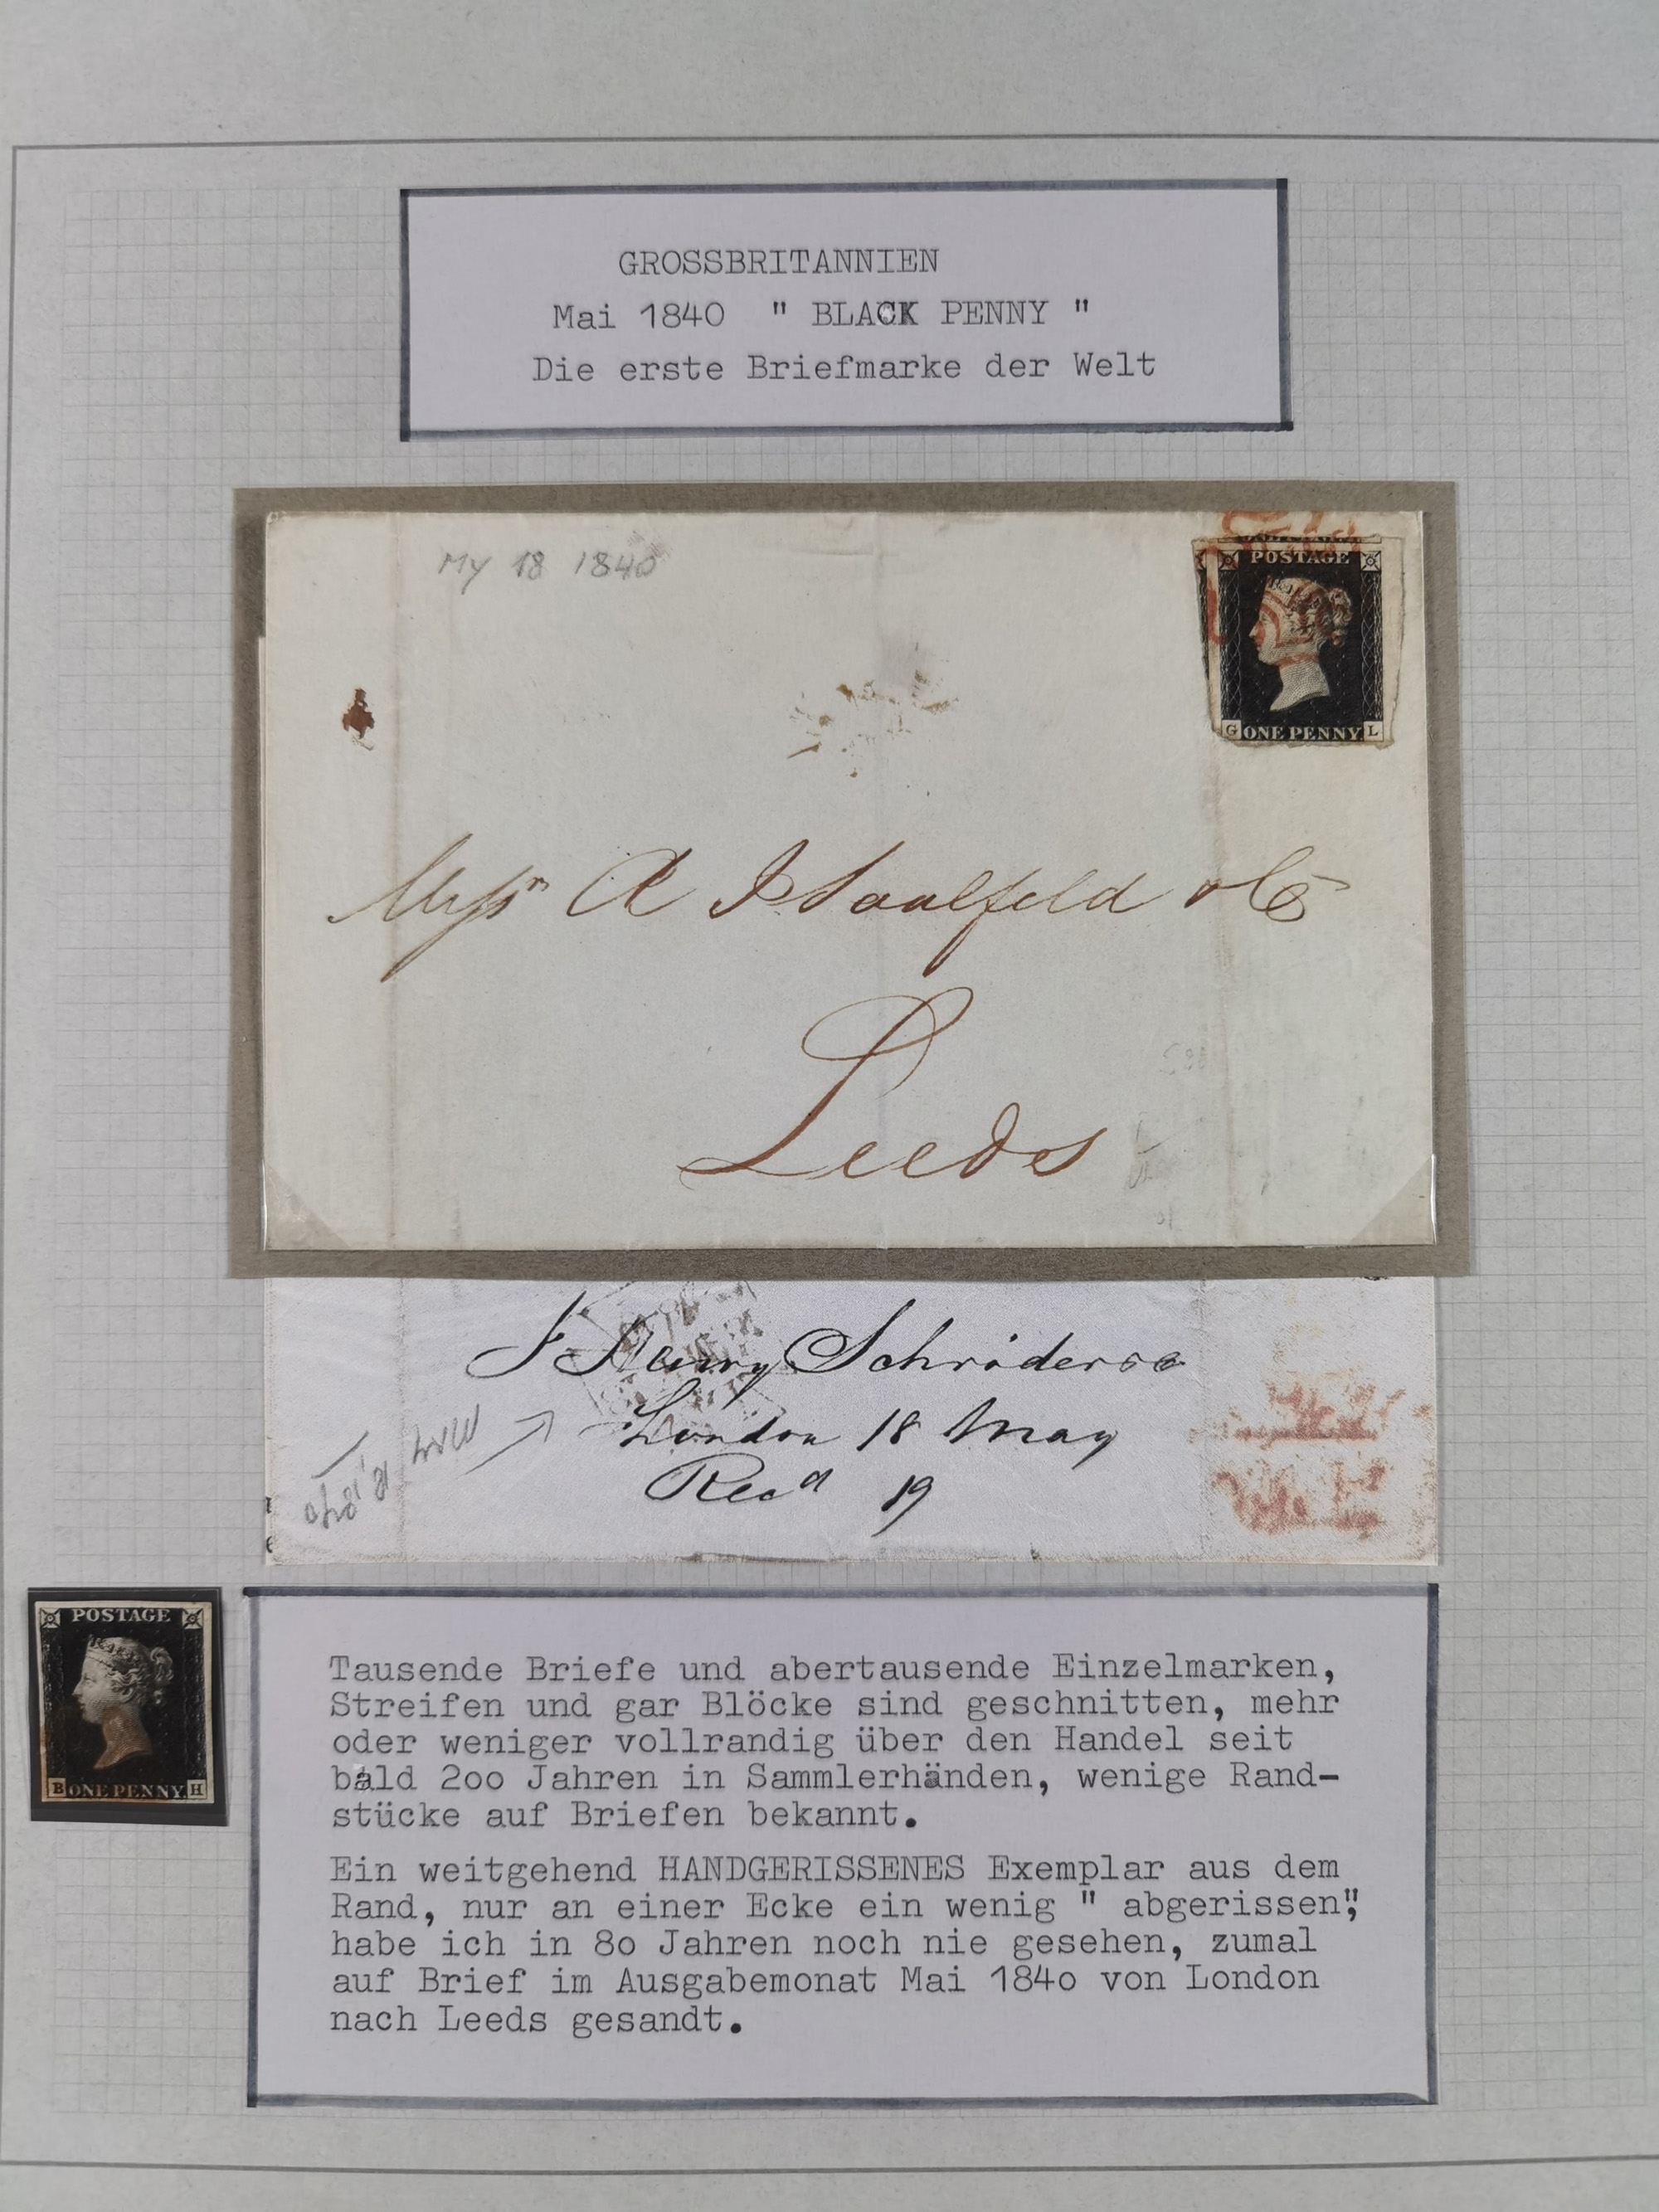 GROSSBRITANNIEN
Mai 1840 " BLACK PENNY "
Die erste Briefmarke der Welt
My 18 1840
POSTAGE
G ONE PENNY L
Messrs A I Saalfeld & Co
Leeds
J Henry Schröder &Co
London 18 May
Recd 19
POSTAGE
B ONE PENNY H
Tausende Briefe und abertausende Einzelmarken,
Streifen und gar Blöcke sind geschnitten, mehr
oder weniger vollrandig über den Handel seit
bald 2oo Jahren in Sammlerhänden, wenige Rand-
stücke auf Briefen bekannt.
Ein weitgehend HANDGERISSENES Exemplar aus dem
Rand, nur an einer Ecke ein wenig " abgerissen",
habe ich in 8o Jahren noch nie gesehen, zumal
auf Brief im Ausgabemonat Mai 184o von London
nach Leeds gesandt.